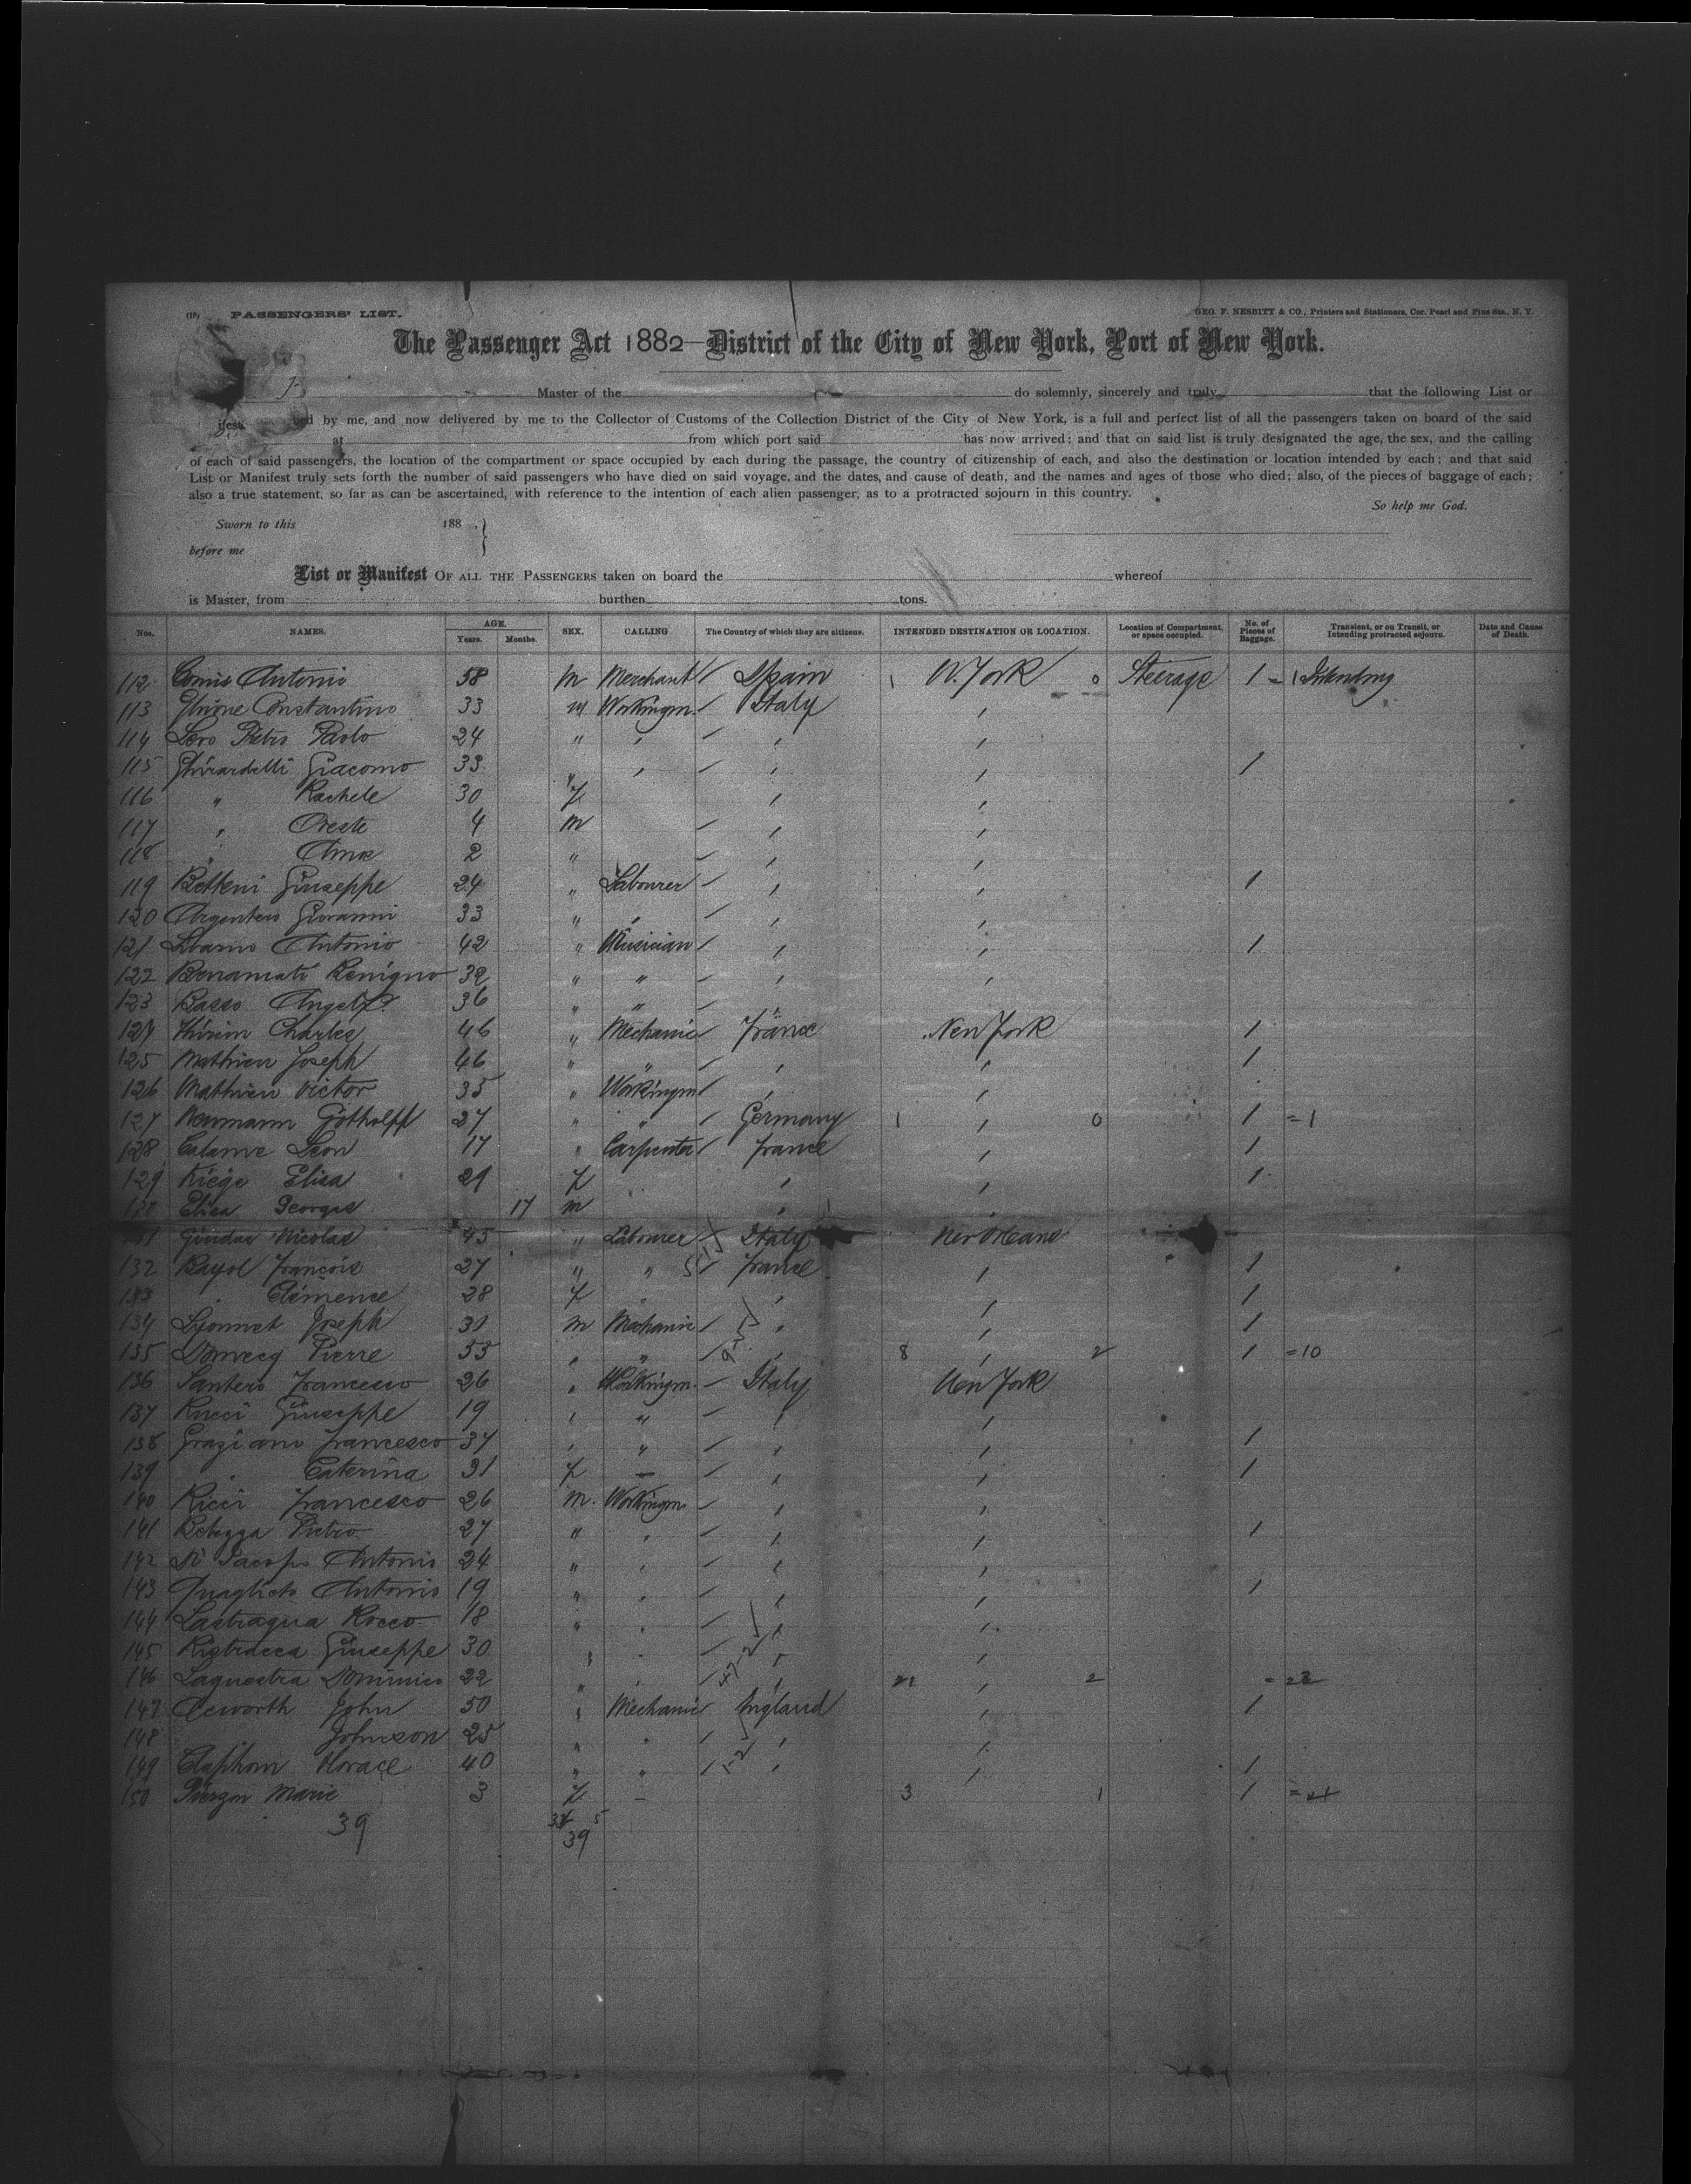 (19) PASSENGERS' LIST. GEO. F. NESBITT & CO., Printers and Stationers, Cor. Pearl and Pine Sts., N. Y.
The Passenger Act 1882 District of the City of New York, Port of New York.
Master of the do solemnly, sincerely and truly that the following List or
by me, and now delivered by me to the Collector of Customs of the Collection District of the City of New York, is a full and perfect list of all the passengers taken on board of the said
at from which port said has now arrived; and that on said list is truly designated the age, the sex, and the calling
of each of said passengers, the location of the compartment or space occupied by each during the passage, the country of citizenship of each, and also the destination or location intended by each; and that said
List or Manifest truly sets forth the number of said passengers who have died on said voyage, and the dates, and cause of death, and the names and ages of those who died; also, of the pieces of baggage of each;
also a true statement, so far as can be ascertained, with reference to the intention of each alien passenger, as to a protracted sojourn in this country.
So help me God.
Sworn to this 188 .}
before me
List or Manifest OF ALL THE PASSENGERS taken on board the whereof
is Master, from burthen tons.
Nos. NAMES. AGE. Years. Months. SEX. CALLING The Country of which they are citizens. INTENDED DESTINATION OR LOCATION. Location of Compartment, or space occupied. No. of Pieces of Baggage. Transient, or on Transit, or Intending protracted sojourn. Date and Cause of Death.
112 Antonio 58 m Merchant / Spain 1 N. York 0 Steerage 1 - 1 Intending
113 Ghione Constantino 33 m Workingm. / Italy "
114 Pietro Paolo 24 " " / " "
115 Ghirardelli Giacomo 33 " " / " " 1
116 " Rachele 30 f " "
117 " Oreste 4 m / " "
118 " 2 " / " "
119 Bettini Giuseppe 24 " Labourer / " " 1
120 Argentero Giovanni 33 " " / " "
121 Antonio 42 " Musician / " " 1
122 Benamati Benigno 32 " " / " "
123 Basso 36 " " / "
124 Charles 46 " Mechanic / France New York 1
125 Mathieu Joseph 46 " " / " " 1
126 Mathieu Victor 35 " Workingm / " "
127 Neumann 27 " " / Germany 1 " 0 1 = 1
128 Calame Leon 17 " Carpenter / France " 1
129 Elisa 21 f " " 1
130 Elisa Georges 17 m " "
131 Nicolas 45 " Labourer Italy New Orleans
132 Bayol François 27 " " / France " 1
133 " Clémence 28 f " " " 1
134 Lyonnet Joseph 31 m Mechanic / " " 1
135 Domecq Pierre 53 " " / " 8 " 2 1 = 10
136 Santero Francesco 26 " Workingm. / Italy New York
137 Rucci Giuseppe 19 " " / " "
138 Graziano Francesco 37 " " / " " 1
139 " Caterina 31 f — / " " 1
140 Ricci Francesco 26 m. Workingm / " "
141 Pietro 27 " " / " " 1
142 Antonio 24 " " / " "
143 Antonio 19 " " / " " 1
144 Rocco 18 " " / " "
145 Giuseppe 30 " " / " "
146 Laquestra 22 " " / " 21 " 2 = 23
147 Acworth John 50 " Mechanic / England " 1
148 Johnson 25 " " / " "
149 Horace 40 " " / " " 1
150 Marie 3 f — 3 1 1 =
39 5
39